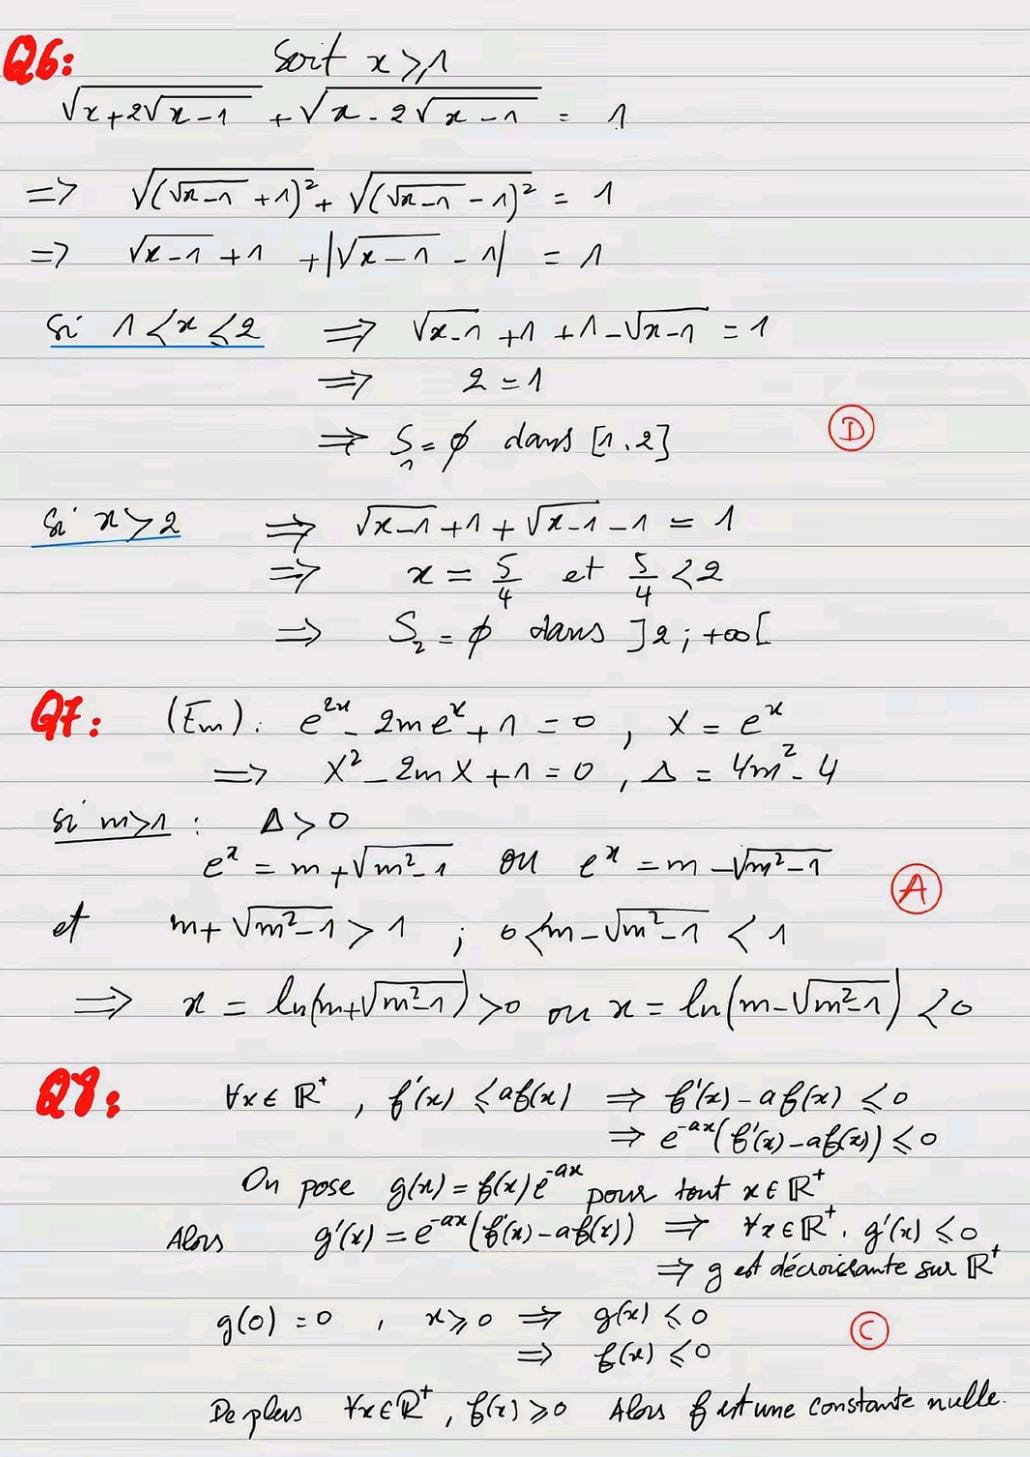 Q6: Soit x ⩾ 1
√(x+2√(x-1)) + √(x-2√(x-1)) = 1
=> √((√(x-1) +1)²) + √((√(x-1) -1)²) = 1
=> √(x-1) +1 + |√(x-1) - 1| = 1
Si 1 ⩽ x ⩽ 2 => √(x-1) +1 +1 -√(x-1) = 1
=> 2 = 1
=> S₁ = ∅ dans [1.2] D
Si x > 2 => √(x-1) +1 + √(x-1) -1 = 1
=> x = 5/4 et 5/4 < 2
=> S₂ = ∅ dans ]2 ; +∞[
Q7: (Em): e^{2x} - 2m e^x + 1 = 0 , X = e^x
=> X² - 2m X + 1 = 0 , Δ = 4m² - 4
Si m>1 : Δ > 0
e^x = m + √(m²-1) ou e^x = m - √(m²-1) A
et m + √(m²-1) > 1 ; 0 < m - √(m²-1) < 1
=> x = ln(m+√(m²-1)) > 0 ou x = ln(m-√(m²-1)) < 0
Q8: ∀x ∈ ℝ⁺ , f'(x) ⩽ af(x) => f'(x) - af(x) ⩽ 0
=> e^{-ax}(f'(x) - af(x)) ⩽ 0
On pose g(x) = f(x)e^{-ax} pour tout x ∈ ℝ⁺
Alors g'(x) = e^{-ax}(f'(x) - af(x)) => ∀x ∈ ℝ⁺. g'(x) ⩽ 0
=> g est décroissante sur ℝ⁺
g(0) = 0 , x ⩾ 0 => g(x) ⩽ 0 C
=> f(x) ⩽ 0
De plus ∀x ∈ ℝ⁺ , f(x) ⩾ 0 Alors f est une constante nulle.